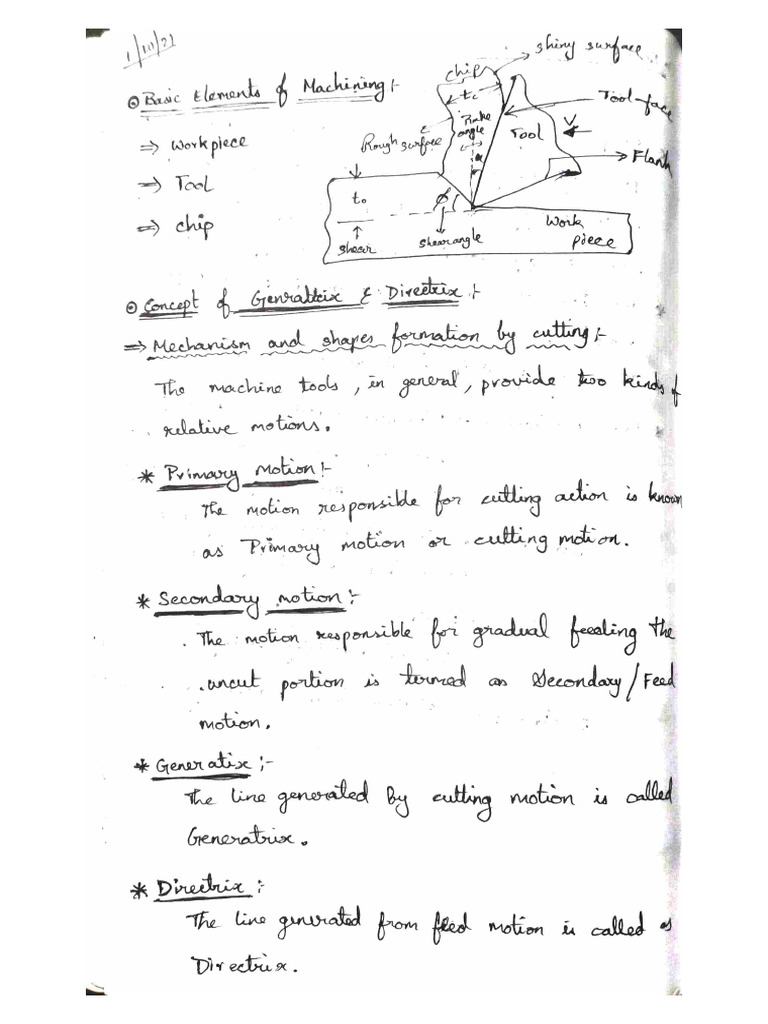 1/10/21
⊙ Basic Elements of Machining:-
⇒ Workpiece
⇒ Tool
⇒ chip
shiny surface
chip
tc
Tool face
Rake angle
α
Tool
V
Rough surface
Flank
to
ϕ
shear
shear angle
Work piece
⊙ Concept of Genrattrix & Directrix:-
⇒ Mechanism and shapes formation by cutting:-
The machine tools, in general, provide two kinds of
relative motions.
* Primary Motion:-
The motion responsible for cutting action is known
as Primary motion or cutting motion.
* Secondary motion:-
The motion responsible for gradual feeding the
uncut portion is termed as Secondary/Feed
motion.
* Generatix:-
The line generated by cutting motion is called
Generatrix.
* Directrix:-
The line generated from feed motion is called as
Directrix.